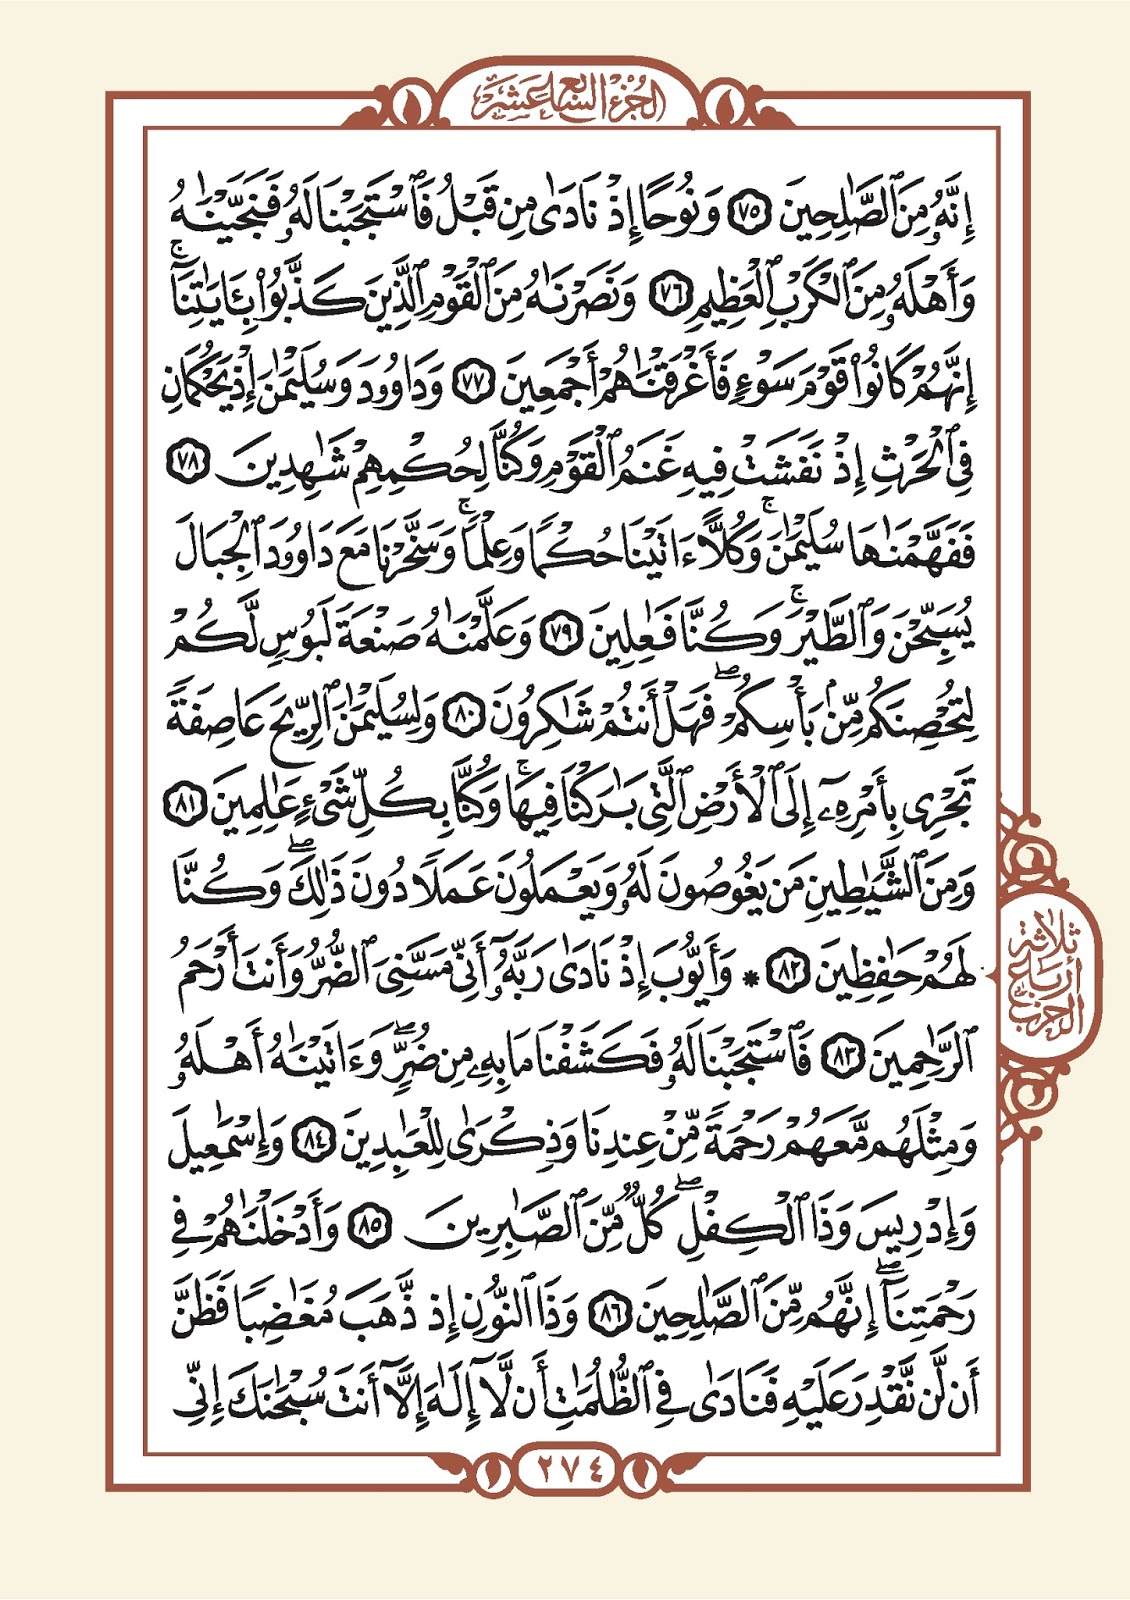 الجزء السابع عشر
إِنَّهُۥ مِنَ ٱلصَّٰلِحِينَ ٧٥ وَنُوحًا إِذْ نَادَىٰ مِن قَبْلُ فَٱسْتَجَبْنَا لَهُۥ فَنَجَّيْنَٰهُ
وَأَهْلَهُۥ مِنَ ٱلْكَرْبِ ٱلْعَظِيمِ ٧٦ وَنَصَرْنَٰهُ مِنَ ٱلْقَوْمِ ٱلَّذِينَ كَذَّبُوا۟ بِـَٔايَٰتِنَآ ۚ
إِنَّهُمْ كَانُوا۟ قَوْمَ سَوْءٍ فَأَغْرَقْنَٰهُمْ أَجْمَعِينَ ٧٧ وَدَاوُۥدَ وَسُلَيْمَٰنَ إِذْ يَحْكُمَانِ
فِى ٱلْحَرْثِ إِذْ نَفَشَتْ فِيهِ غَنَمُ ٱلْقَوْمِ وَكُنَّا لِحُكْمِهِمْ شَٰهِدِينَ ٧٨
فَفَهَّمْنَٰهَا سُلَيْمَٰنَ ۚ وَكُلًّا ءَاتَيْنَا حُكْمًا وَعِلْمًا ۚ وَسَخَّرْنَا مَعَ دَاوُۥدَ ٱلْجِبَالَ
يُسَبِّحْنَ وَٱلطَّيْرَ ۚ وَكُنَّا فَٰعِلِينَ ٧٩ وَعَلَّمْنَٰهُ صَنْعَةَ لَبُوسٍ لَّكُمْ
لِتُحْصِنَكُم مِّنۢ بَأْسِكُمْ ۖ فَهَلْ أَنتُمْ شَٰكِرُونَ ٨٠ وَلِسُلَيْمَٰنَ ٱلرِّيحَ عَاصِفَةً
تَجْرِى بِأَمْرِهِۦٓ إِلَى ٱلْأَرْضِ ٱلَّتِى بَٰرَكْنَا فِيهَا ۚ وَكُنَّا بِكُلِّ شَىْءٍ عَٰلِمِينَ ٨١
وَمِنَ ٱلشَّيَٰطِينِ مَن يَغُوصُونَ لَهُۥ وَيَعْمَلُونَ عَمَلًا دُونَ ذَٰلِكَ ۖ وَكُنَّا
لَهُمْ حَٰفِظِينَ ٨٢ * وَأَيُّوبَ إِذْ نَادَىٰ رَبَّهُۥٓ أَنِّى مَسَّنِىَ ٱلضُّرُّ وَأَنتَ أَرْحَمُ
ٱلرَّٰحِمِينَ ٨٣ فَٱسْتَجَبْنَا لَهُۥ فَكَشَفْنَا مَا بِهِۦ مِن ضُرٍّ ۖ وَءَاتَيْنَٰهُ أَهْلَهُۥ
وَمِثْلَهُم مَّعَهُمْ رَحْمَةً مِّنْ عِندِنَا وَذِكْرَىٰ لِلْعَٰبِدِينَ ٨٤ وَإِسْمَٰعِيلَ
وَإِدْرِيسَ وَذَا ٱلْكِفْلِ ۖ كُلٌّ مِّنَ ٱلصَّٰبِرِينَ ٨٥ وَأَدْخَلْنَٰهُمْ فِى
رَحْمَتِنَآ ۖ إِنَّهُم مِّنَ ٱلصَّٰلِحِينَ ٨٦ وَذَا ٱلنُّونِ إِذ ذَّهَبَ مُغَٰضِبًا فَظَنَّ
أَن لَّن نَّقْدِرَ عَلَيْهِ فَنَادَىٰ فِى ٱلظُّلُمَٰتِ أَن لَّآ إِلَٰهَ إِلَّآ أَنتَ سُبْحَٰنَكَ إِنِّى
ثلاثة
أرباع
الحزب
٢٧٤